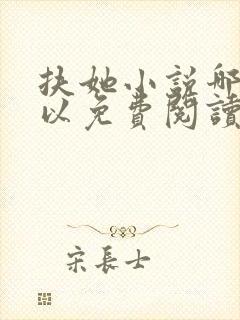 扶她小説哪
以免費閱讀
宋長士